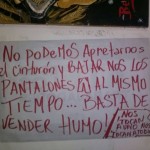 No PODEMOS APretarnos
el cinturón y BAJAR NOS LOS
PANTALONES A AL MISMO
TIEMPO... BASTA DE
VENDER HUMO!
¡NOS
TOCAN
A UNO NOS
TOCAN A TODOS